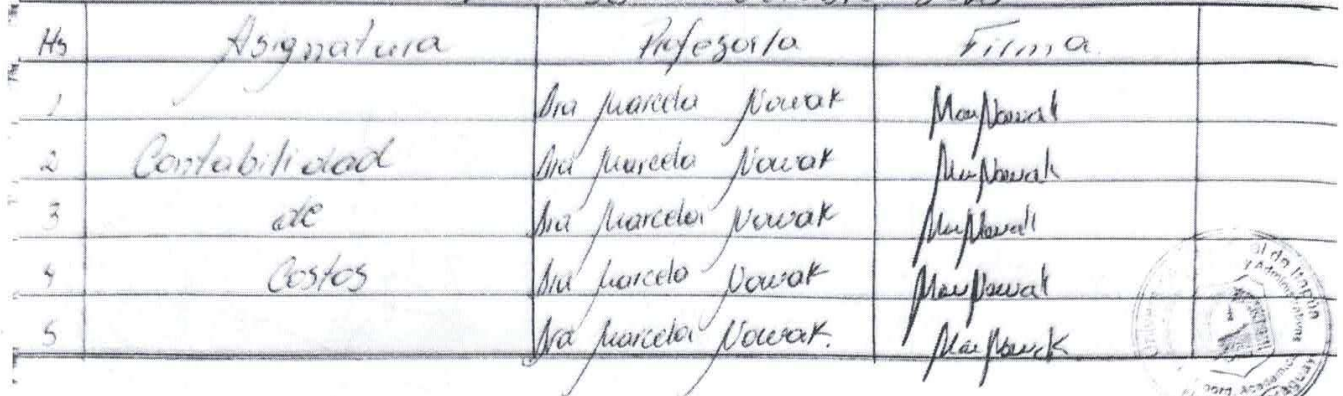 Hs Asignatura Profesor/a Firma
1 Dra Marcela Nowak MarNowak
2 Contabilidad Dra Marcela Nowak MarNowak
3 de Dra Marcela Nowak MarNowak
4 Costos Dra Marcela Nowak MarNowak
5 Dra Marcela Nowak. MarNowak
al de Itapúa
y Administrativas